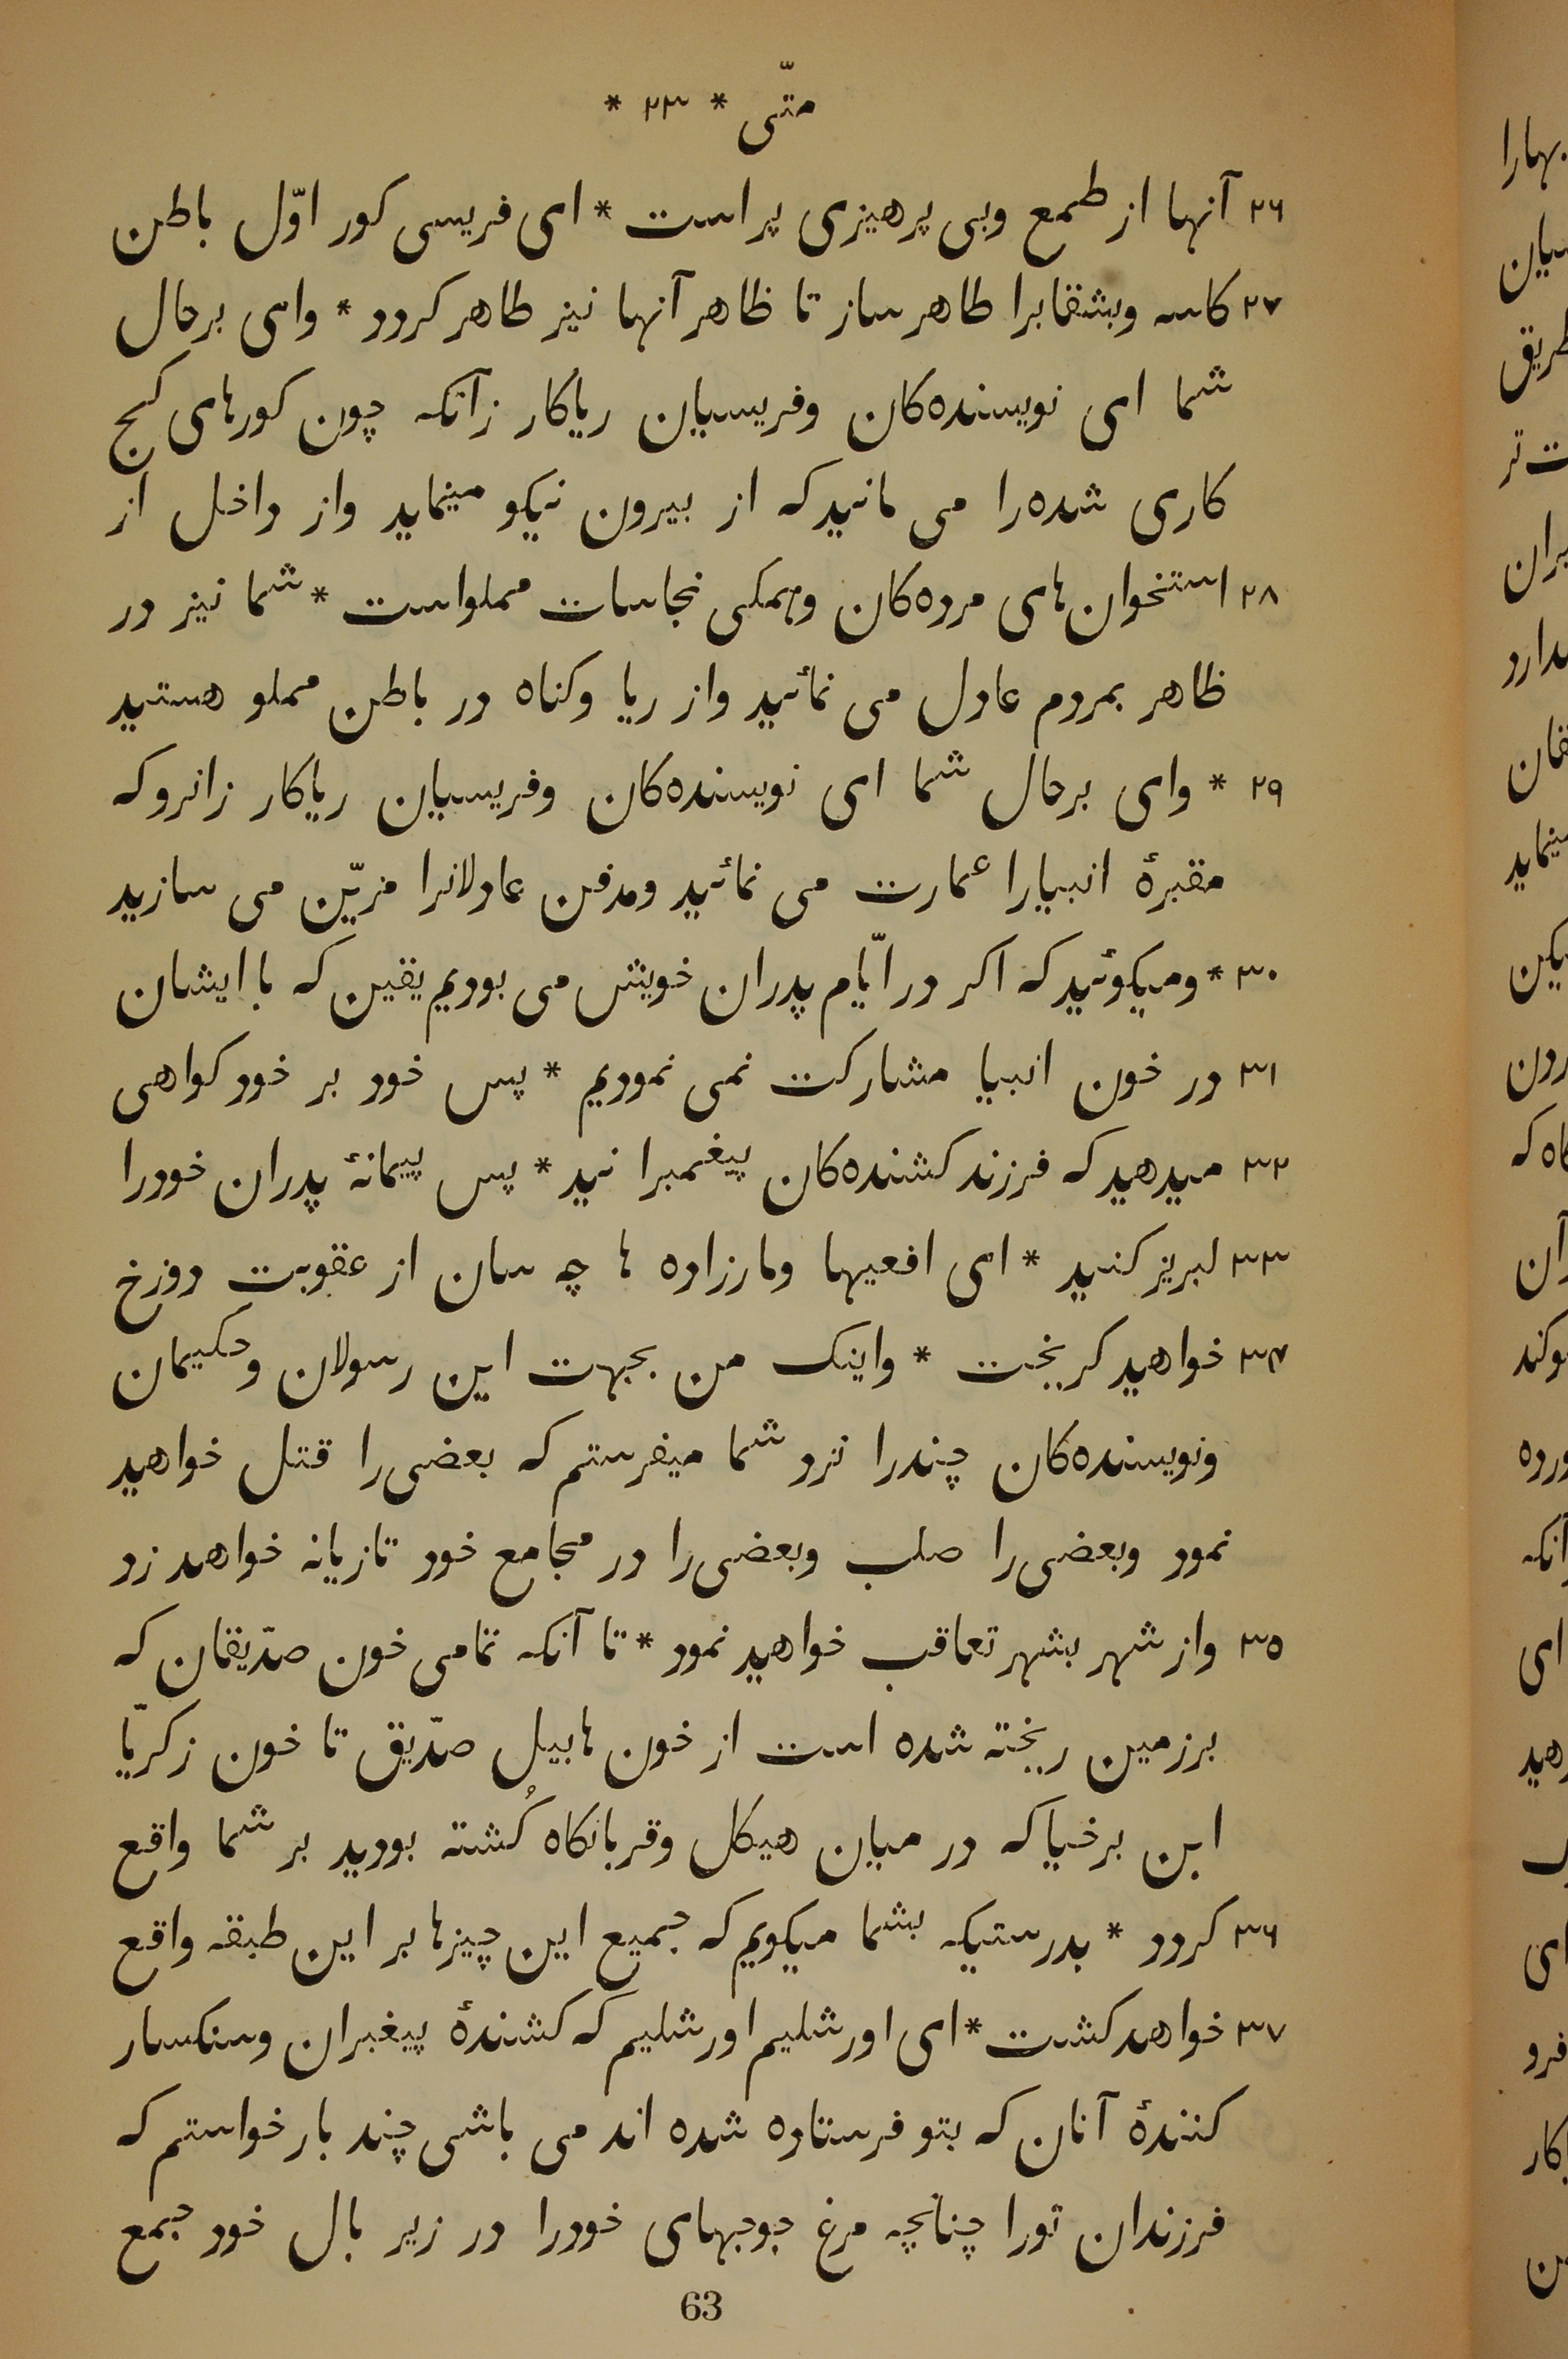 متّی * ۲۳ *
۲۶ آنها از طمع وبی پرهیزی پر است * ای فریسی کور اوّل باطن
۲۷ کاسه وبشقابرا طاهر ساز تا ظاهر آنها نیز طاهر کردد * وای برحال
شما ای نویسنده‌کان وفریسیان ریاکار زآنکه چون کورهای کچ
کاری شده‌را می مانید که از بیرون نیکو مینماید واز داخل از
۲۸ استخوان‌های مرده‌کان وهمکی نجاسات مملواست * شما نیز در
ظاهر بمردم عادل می نمائید واز ریا وکناه در باطن مملو هستید
۲۹ * وای برحال شما ای نویسنده‌کان وفریسیان ریاکار زانرو که
مقبرهٔ انبیارا عمارت می نمائید ومدفن عادلانرا مزیّن می سازید
۳۰ * ومیکوئید که اکر در ایّام پدران خویش می بودیم یقین که با ایشان
۳۱ در خون انبیا مشارکت نمی نمودیم * پس خود بر خود کواهی
۳۲ میدهید که فرزند کشنده‌کان پیغمبرا نید * پس پیمانهٔ پدران خودرا
۳۳ لبریز کنید * ای افعیها ومارزاده ها چه سان از عقوبت دوزخ
۳۴ خواهید کریخت * واینک من بجهت این رسولان وحکیمان
ونویسنده‌کان چندرا نزد شما میفرستم که بعضی‌را قتل خواهید
نمود وبعضی‌را صلب وبعضی‌را در مجامع خود تازیانه خواهد زد
۳۵ واز شهر بشهر تعاقب خواهید نمود * تا آنکه تمامی خون صدّیقان که
برزمین ریخته شده است از خون هابیل صدّیق تا خون زکریّا
ابن برخیا که در میان هیکل وقربانکاه کُشته بودید بر شما واقع
۳۶ کردد * بدرستیکه بشما میکویم که جمیع این چیزها بر این طبقه واقع
۳۷ خواهد کشت * ای اورشلیم اورشلیم که کشندهٔ پیغبران وسنکسار
کنندهٔ آنان که بتو فرستاده شده اند می باشی چند بار خواستم که
فرزندان تورا چنانچه مرغ جوجهای خودرا در زیر بال خود جمع
63